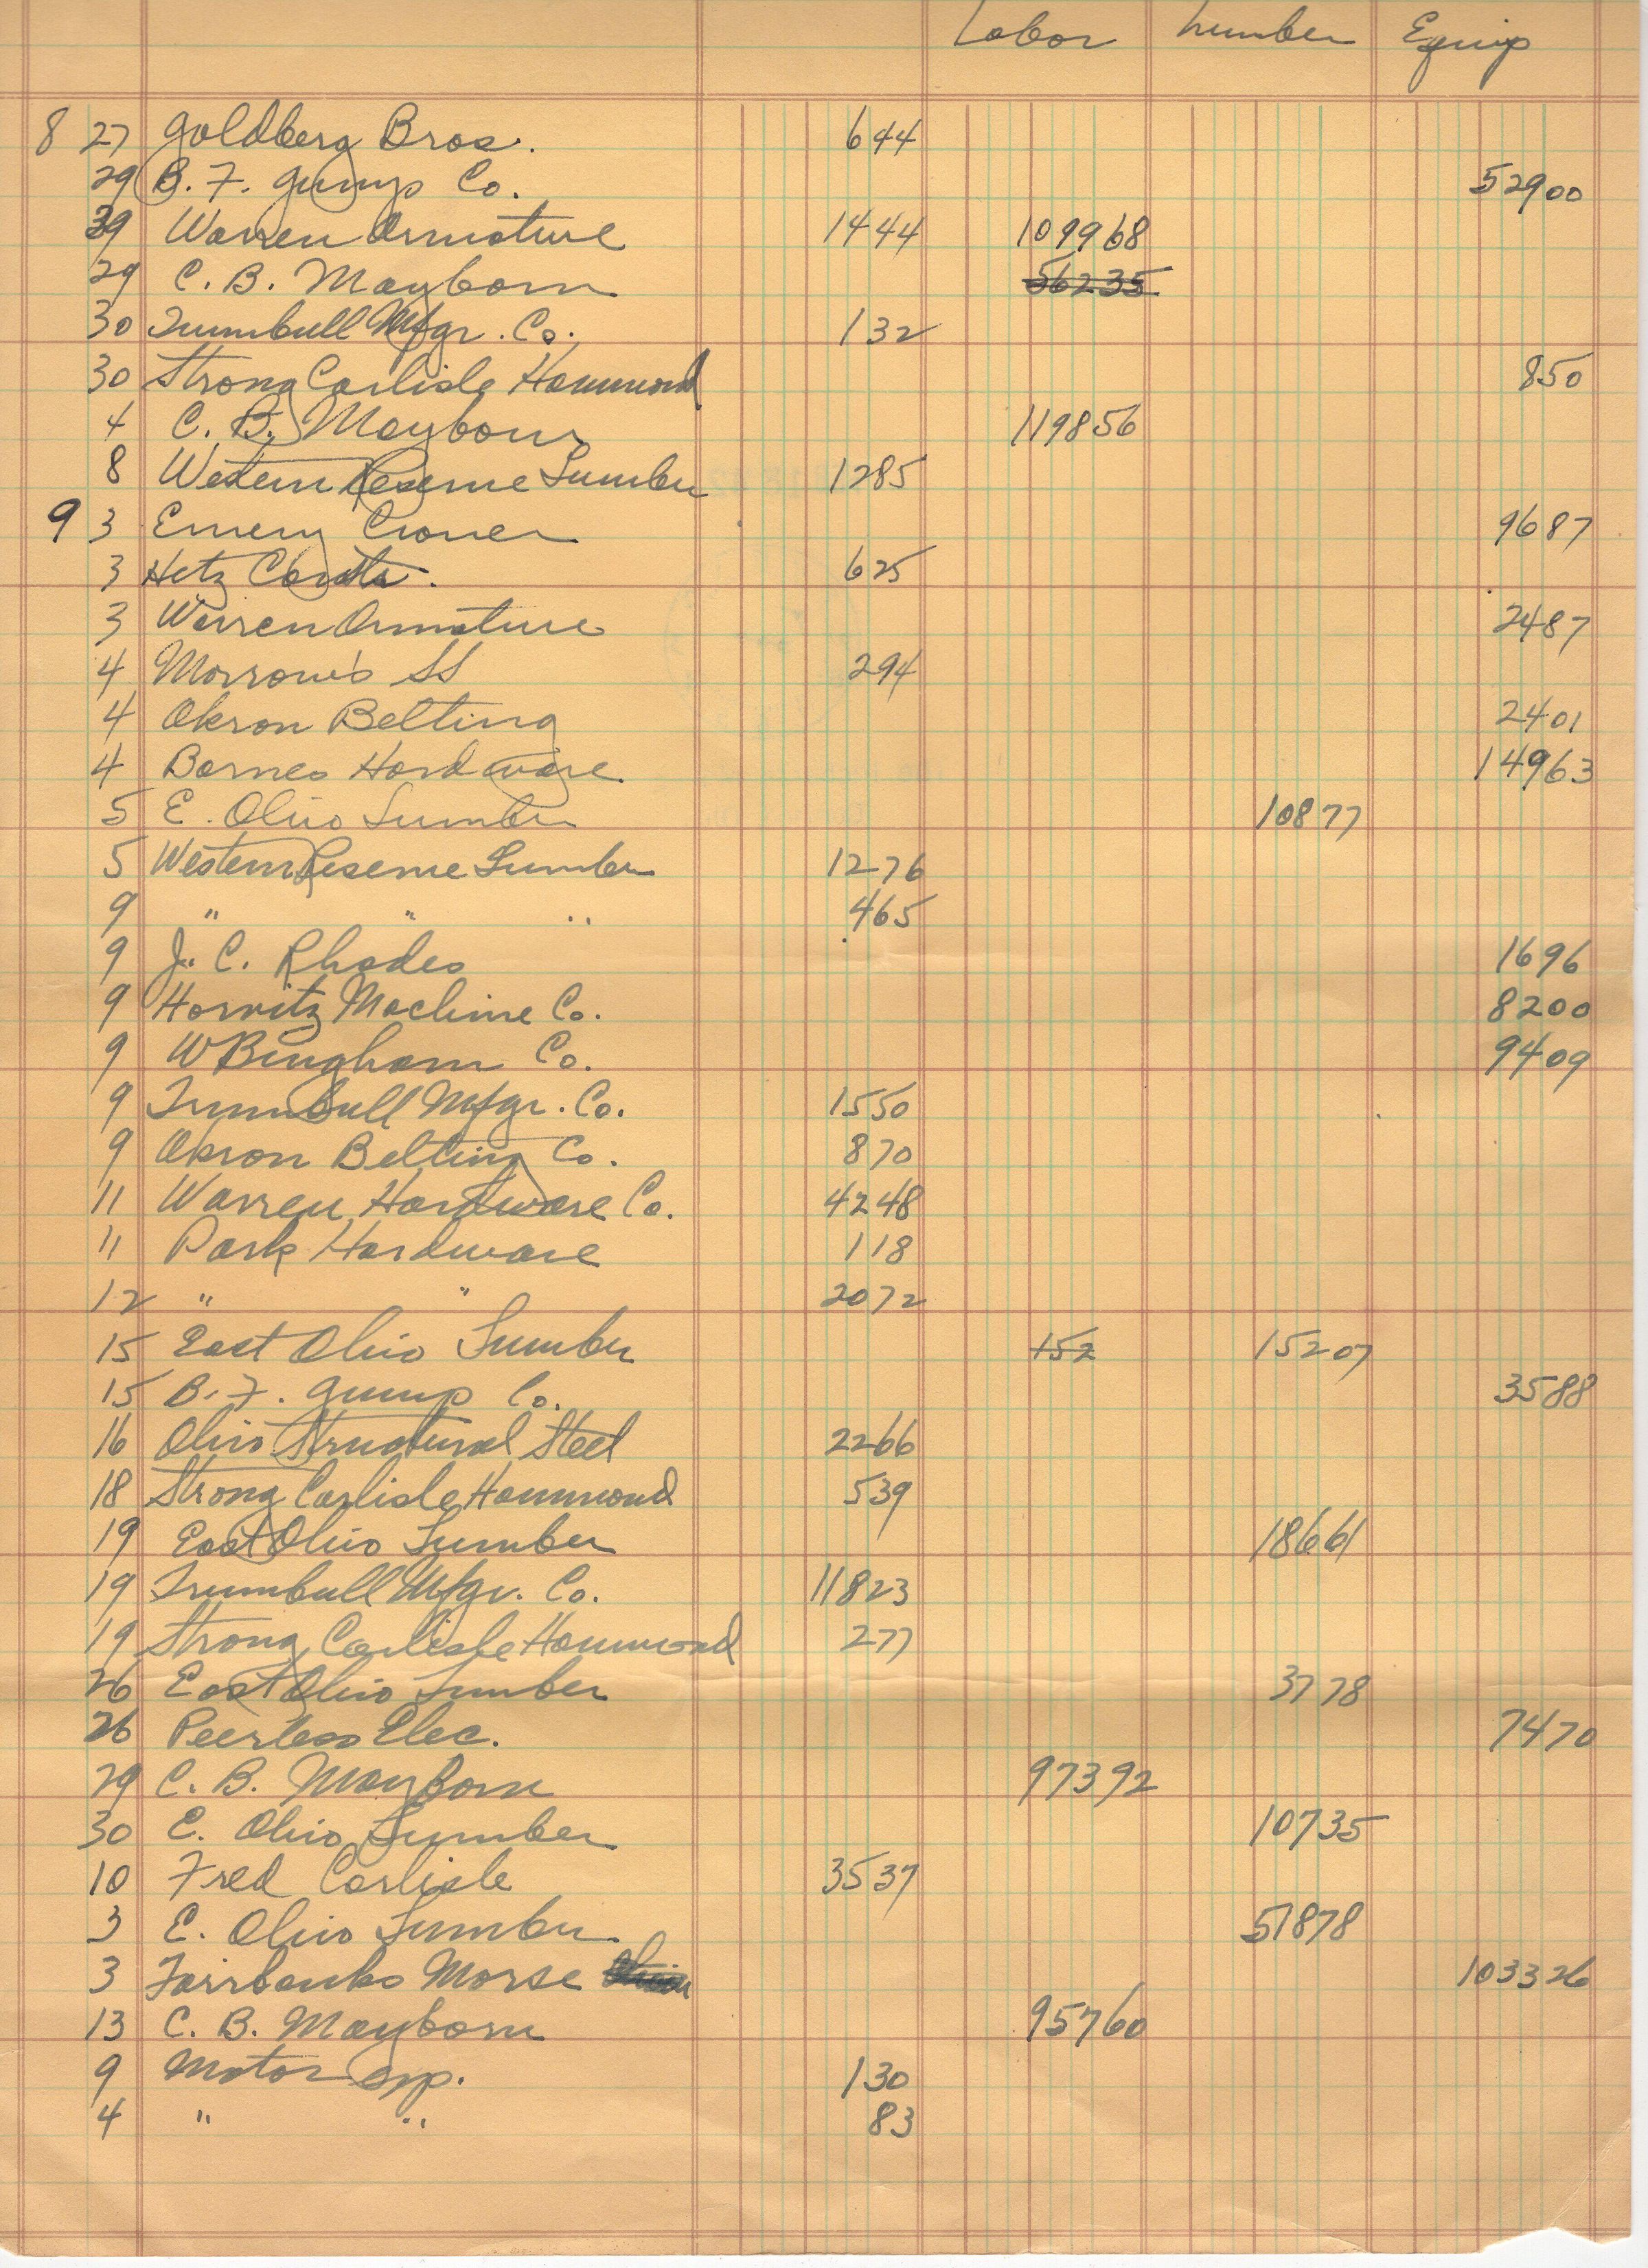 Labor Lumber Equip
8 27 Goldberg Bros. 644
29 B. F. Gump Co. 52900
29 Warren Armature 1444 109968
29 C. B. Mayborn 56235
30 Trumbull Mfgr. Co. 132
30 Strong Carlisle Hammond 850
4 C. B. Mayborn 119856
8 Western Reserve Lumber 1285
9 3 Emery Croner 9687
3 Hetz Constr. 625
3 Warren Armature 2487
4 Morrow's SS 294
4 Akron Belting 2401
4 Barnes Hardware 14963
5 E. Ohio Lumber 10877
5 Western Reserve Lumber 1276
9 " " " 465
9 J. C. Rhodes 1696
9 Horvitz Machine Co. 8200
9 W Bingham Co. 9409
9 Trumbull Mfgr. Co. 1550
9 Akron Belting Co. 870
11 Warren Hardware Co. 4248
11 Park Hardware 118
12 " " 2072
15 East Ohio Lumber 152 15207
15 B. F. Gump Co. 3588
16 Ohio Structural Steel 2266
18 Strong Carlisle Hammond 539
19 East Ohio Lumber 18661
19 Trumbull Mfgr. Co. 11823
19 Strong Carlisle Hammond 277
26 East Ohio Lumber 3778
26 Peerless Elec. 7470
29 C. B. Mayborn 97392
30 E. Ohio Lumber 10735
10 Fred Carlisle 3537
3 E. Ohio Lumber 51878
3 Fairbanks Morse 103326
13 C. B. Mayborn 95760
9 Motor Exp. 130
4 " " 83